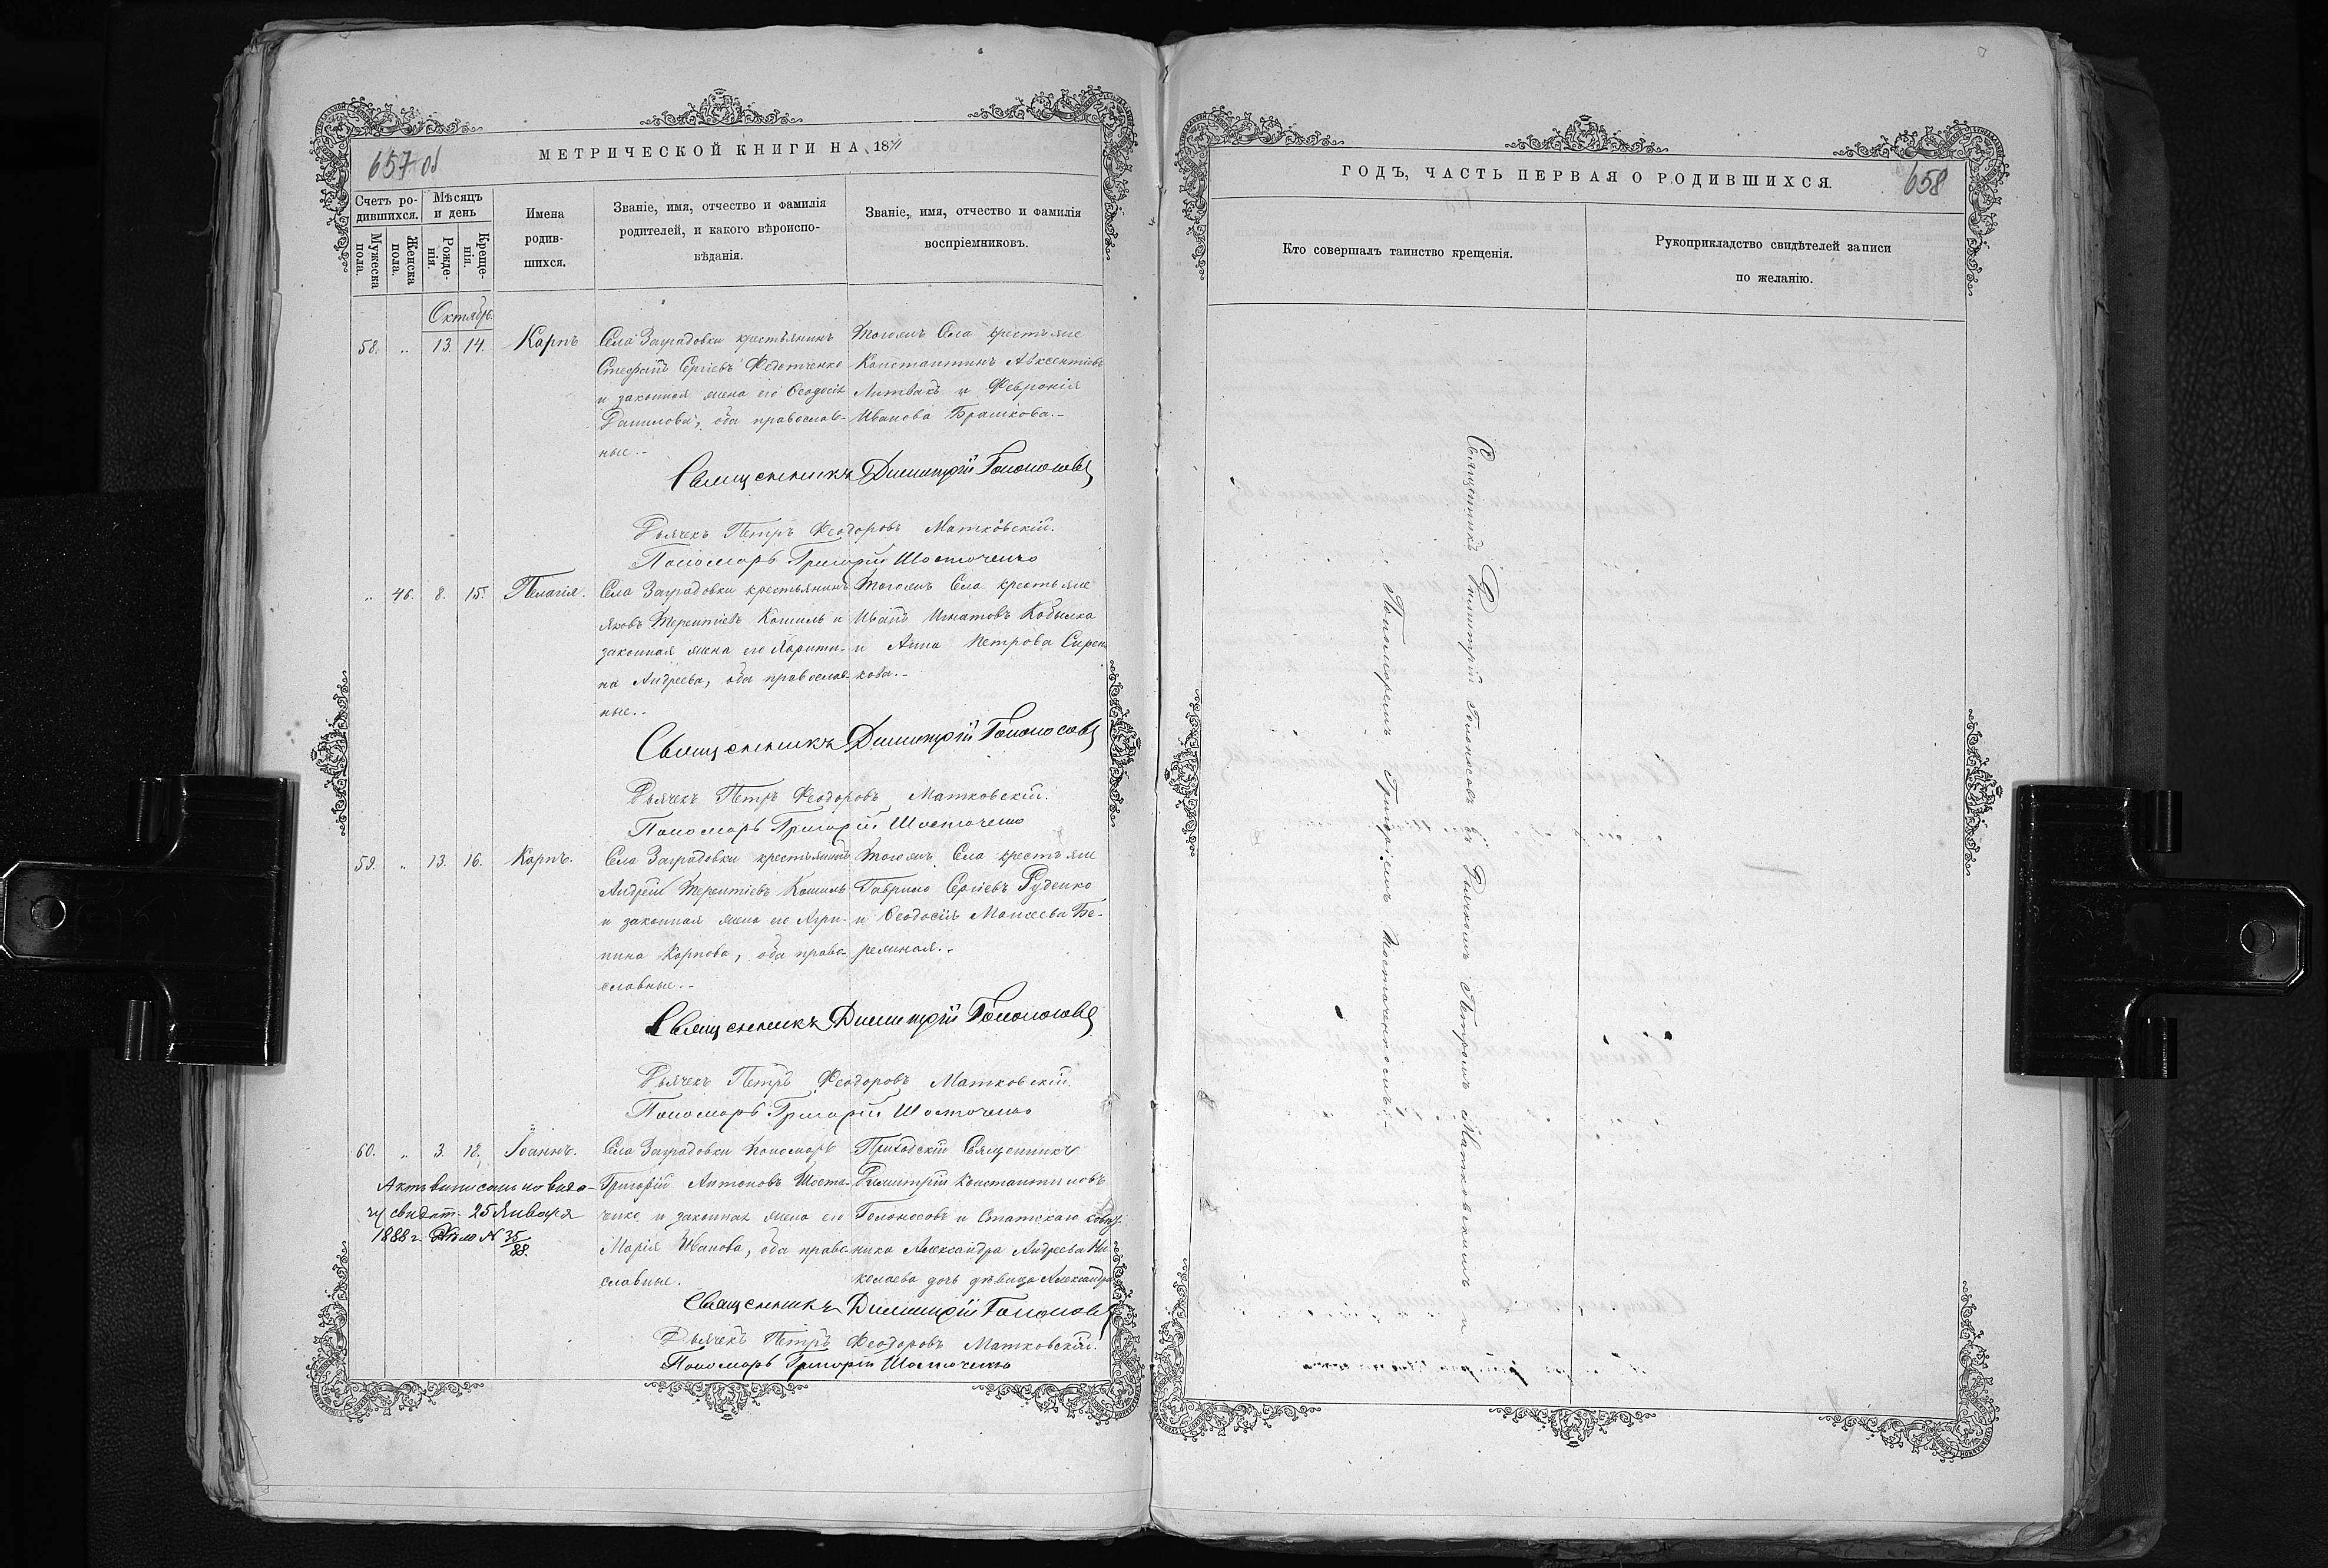 657 об
МЕТРИЧЕСКОЙ КНИГИ НА 18
Счетъ родившихся.
Мужеска пола.
Женска пола.
Мѣсяцъ и день
Рожденія.
Крещенія.
Имена родившихся.
Званіе, имя, отчество и фамилія родителей, и какого вѣроисповѣданія.
Званіе, имя, отчество и фамилія воспріемниковъ.
Октябрь.
58. „ 13. 14. Карпъ
Села Заградовки крестьянинъ
Стефанъ Сергіевъ Федотченко
и законная жена его Ѳеодосія
Данилова, оба православ-
ные.-
Тогожъ Села крестьяне
Константинъ Авксентіевъ
Литвакъ и Февронія
Иванова Брашкова.-
Священникъ Димитрій Голоносовъ
Дьячекъ Петръ Ѳеодоровъ Матковскій.
Пономарь Григорій Шосточенко
„ 46. 8. 15. Пелагія.
Села Заградовки крестьянинъ
Яковъ Терентіевъ Кошиль и
законная жена его Харити-
на Андреева, оба православ-
ные.-
Тогожъ Села крестьяне
Иванъ Игнатовъ Кобылка
и Анна Петрова Сирен-
кова.-
Священникъ Димитрій Голоносовъ
Дьячекъ Петръ Ѳеодоровъ Матковскій.
Пономарь Григорій Шосточенко
59. „ 13. 16. Карпъ.
Села Заградовки крестьянинъ
Андрей Терентіевъ Кошиль
и законная жена его Агри-
пина Карпова, оба право-
славные.-
Тогожъ Села крестьяне
Гаврило Сергіевъ Руденко
и Ѳеодосія Моисеева Бе-
режная.-
Священникъ Димитрій Голоносовъ
Дьячекъ Петръ Ѳеодоровъ Матковскій.
Пономарь Григорій Шосточенко
60. „ 3. 18. Іоаннъ.
Актъ выписанъ но выда-
чу свидѣт. 25 Января
1888 г. Дѣло N 35/88.
Села Заградовки пономарь
Григорій Антоновъ Шосто-
ченко и законная жена его
Марія Иванова, оба право-
славные.
Приходскій Священникъ
Димитрій Константиновъ
Голоносовъ и Статскаго совѣт-
ника Александра Андреева Ни-
колаева дочь дѣвица Александра
Священникъ Димитрій Голоносовъ
Дьячекъ Петръ Ѳеодоровъ Матковскій.
Пономарь Григорій Шосточенко
ГОДЪ, ЧАСТЬ ПЕРВАЯ О РОДИВШИХСЯ.
658
Кто совершалъ таинство крещенія.
Рукоприкладство свидѣтелей записи по желанію.
Священникъ Димитрій Голоносовъ съ Дьячкомъ Петромъ Матковскимъ и
Пономаремъ Григоріемъ Шосточенкосмъ.-